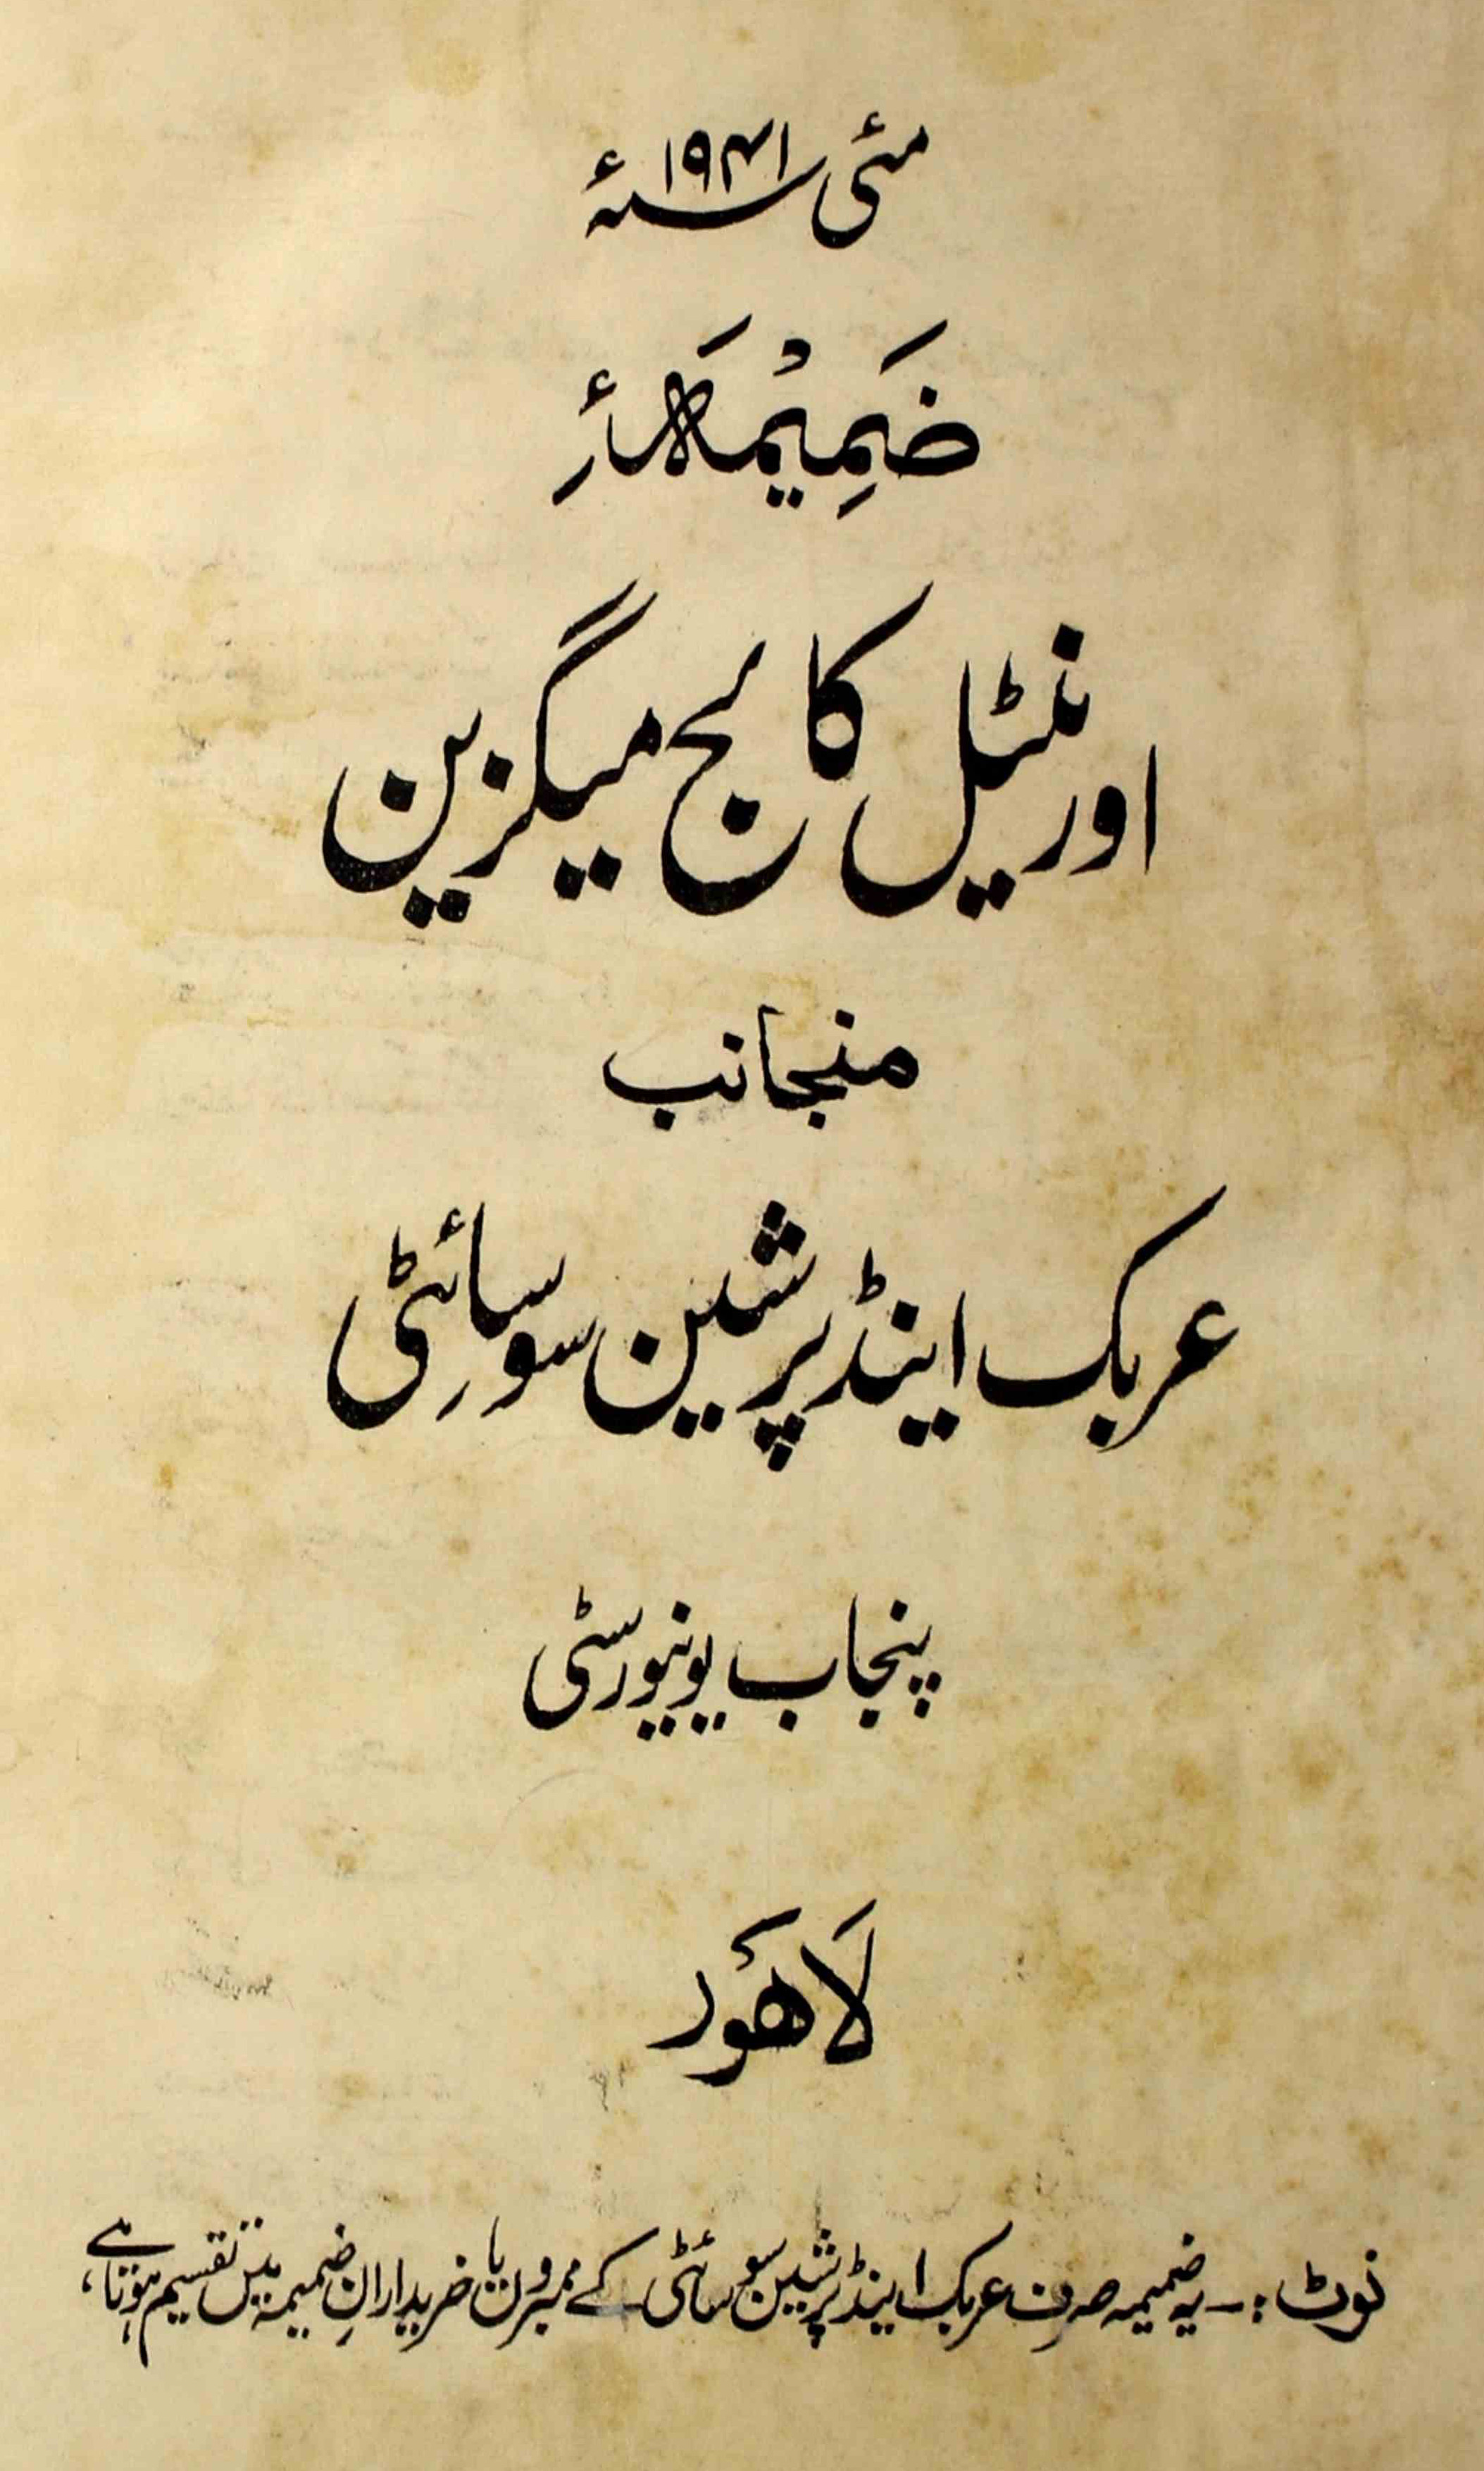 مئی ۱۹۴۱ء
ضَمِیْمَہٴ
اورنٹیل کالج میگزین
منجانب
عربک اینڈ پرشین سوسائٹی
پنجاب یونیورسٹی
لَاہَور
نوٹ :- یہ ضمیمہ صرف عربک اینڈ پرشین سوسائٹی کے ممبروں یا خریدارانِ ضمیمہ میں تقسیم ہوتا ہے،